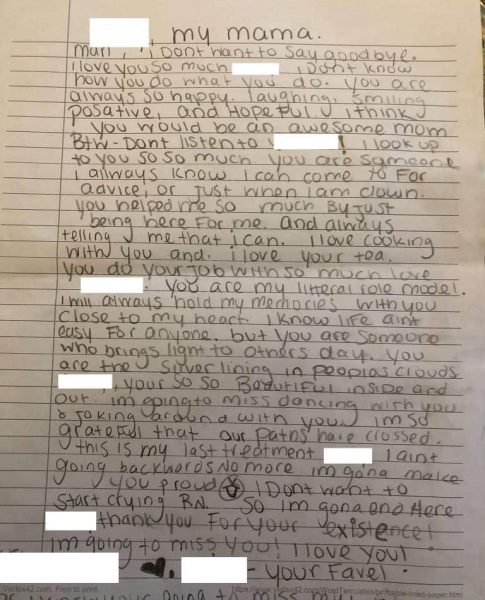 my mama.
man, I Dont want to say goodbye.
I love you so much I Dont know
how you do what you do. You are
always so happy. laughing, smiling
posative, and Hopeful. I think
you would be an awesome mom
Btw- Dont listen to ! I look up
to you so so much. you are someone
I always know I can come to For
advice, or Just when I am clown.
you helped me so much By just
being here For me. and always
telling me that i can. I love cooking
with you and. i love your tea.
you do your job with so much love
. you are my litteral role model.
I will always hold my memories with you
close to my heart. I know life aint
easy For anyone. but you are someone
who brings light to others day. you
are the silver lining in peoples clouds
, your so so Beautiful inside and
out. im going to miss dancing with you
& Joking around with you. im so
grateful that our paths have crossed.
this is my last treatment I aint
going backwards no more. im gona make
you proud I Dont want to
start crying RN. So im gona end Here
thank you For your existence!
im going to miss you! I love you!
- your Fave!
Vertex42.com. Free to print.
https://www.vertex42.com/WordTemplates/printable-lined-paper.html
going to miss my